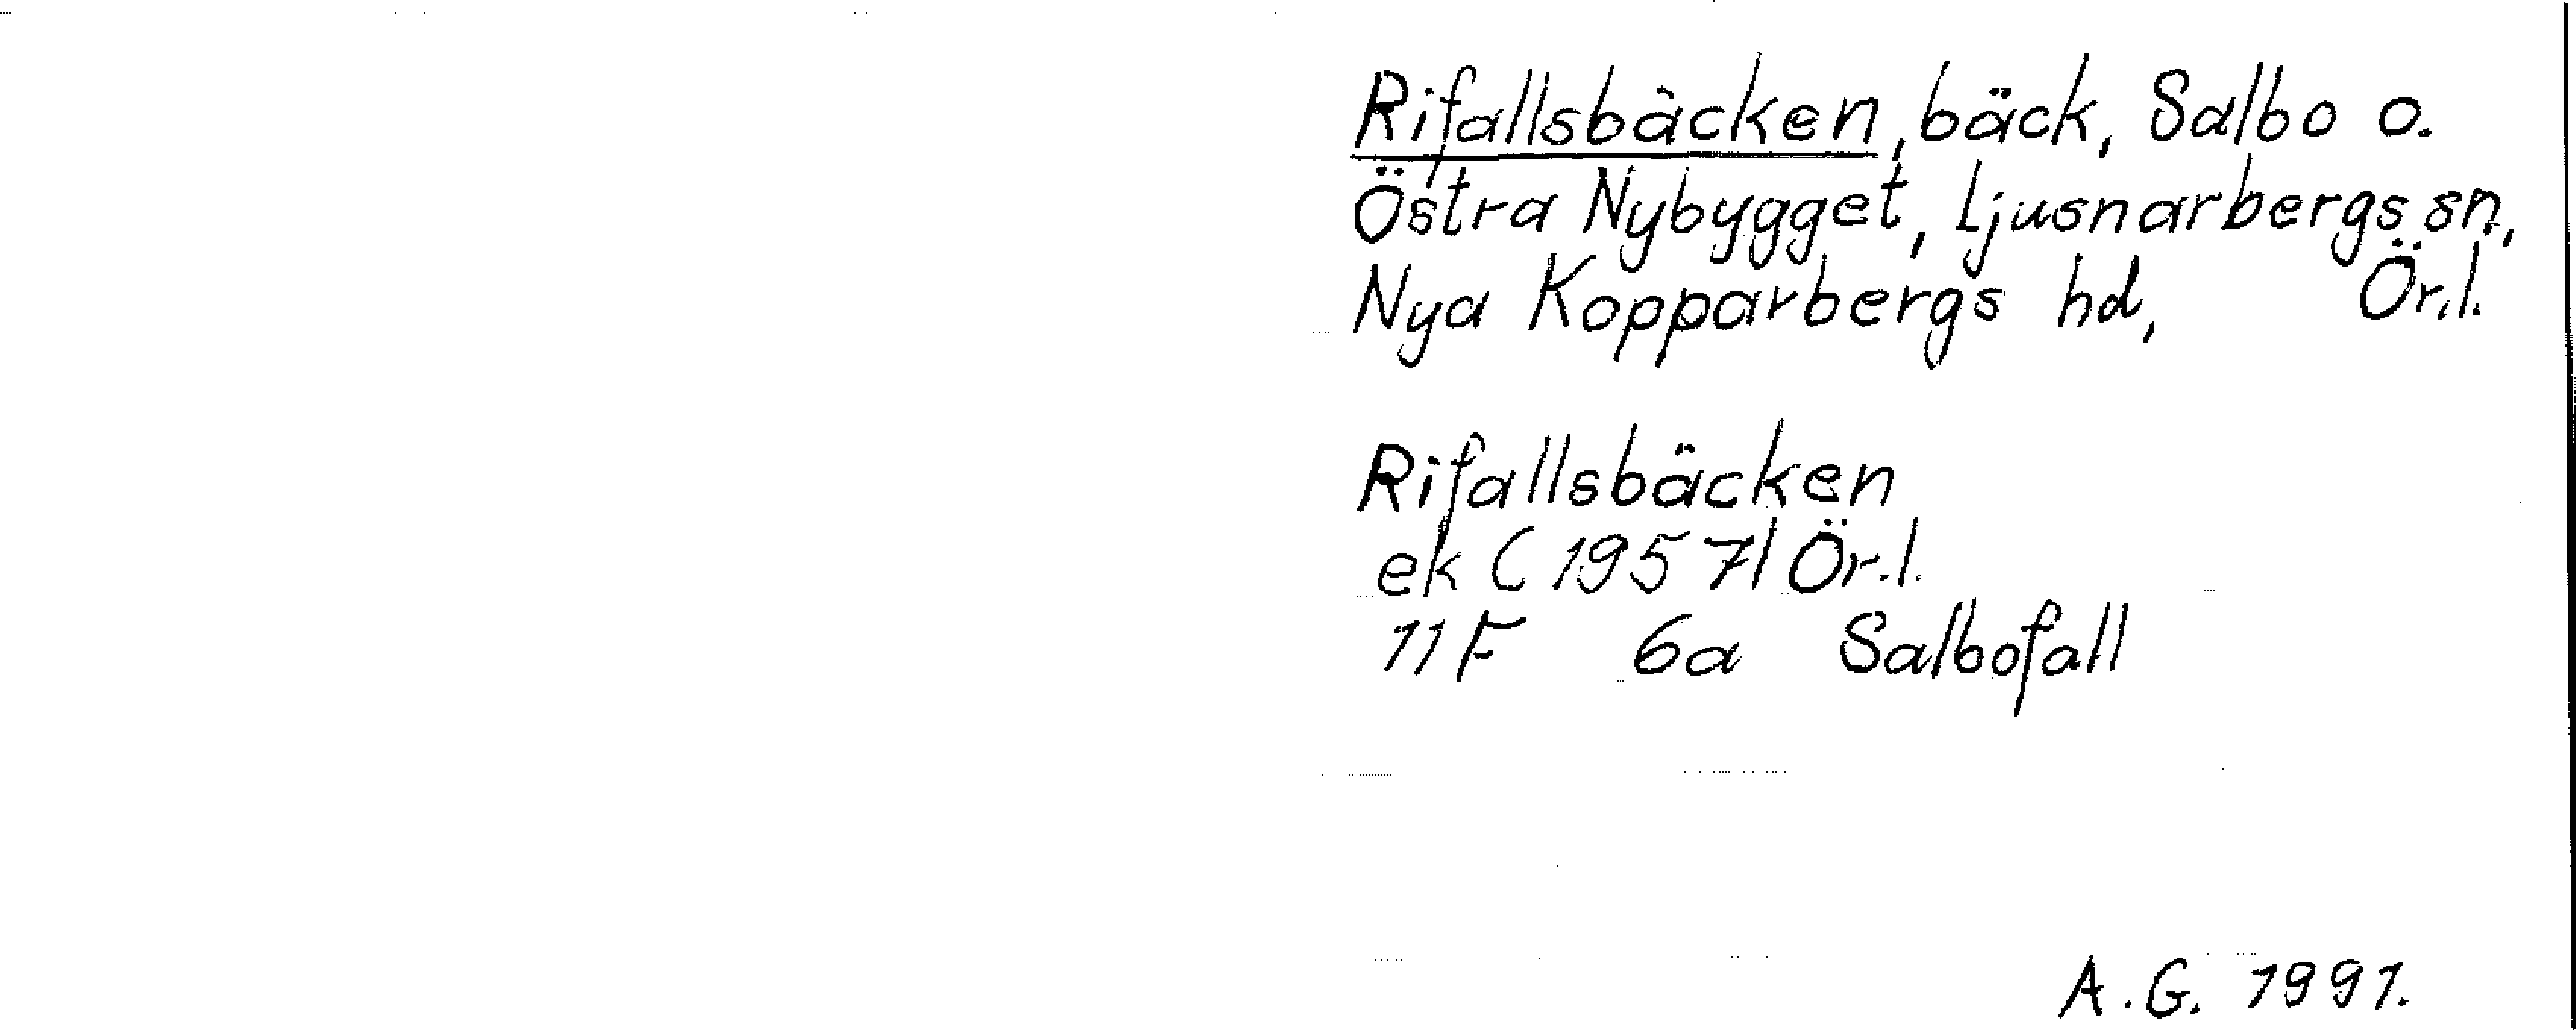 Rifallsbäcken, bäck, Salbo o.
Östra Nybygget, Ljusnarbergs sn,
Nya Kopparbergs hd, Ör.l.
Rifallsbäcken
ek (1957) Ör.l.
11F 6a Salbofall
A.G. 1991.